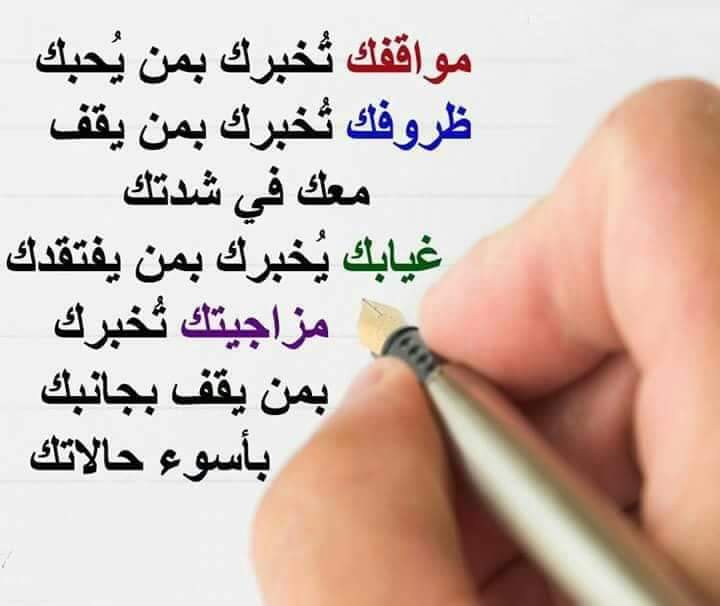 مواقفك تُخبرك بمن يُحبك
ظروفك تُخبرك بمن يقف
معك في شدتك
غيابك يُخبرك بمن يفتقدك
مزاجيتك تُخبرك
بمن يقف بجانبك
بأسوء حالاتك